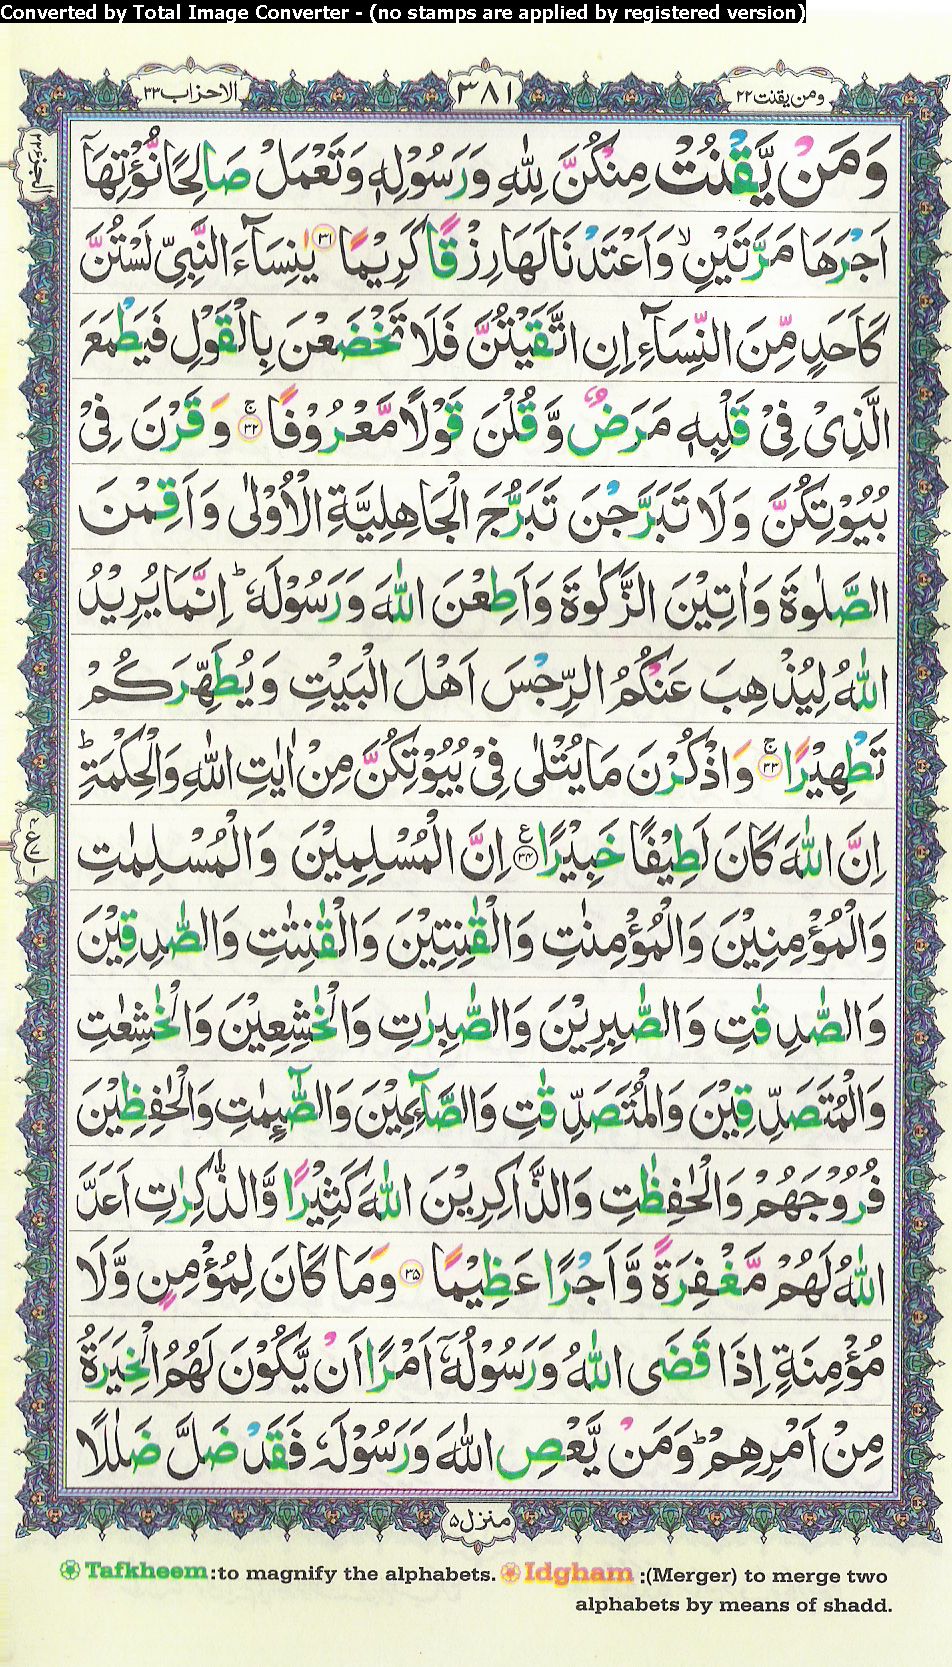 Converted by Total Image Converter - (no stamps are applied by registered version)
ومن یقنت ٢٢
٣٨١
الاحزاب ٣٣
وَمَنْ يَّقْنُتْ مِنْكُنَّ لِلّٰهِ وَرَسُوْلِهٖ وَتَعْمَلْ صَالِحًا نُّؤْتِهَاۤ
اَجْرَهَا مَرَّتَيْنِۙ وَاَعْتَدْنَا لَهَا رِزْقًا كَرِيْمًا ٣١ يٰنِسَآءَ النَّبِيِّ لَسْتُنَّ
كَاَحَدٍ مِّنَ النِّسَآءِ اِنِ اتَّقَيْتُنَّ فَلَا تَخْضَعْنَ بِالْقَوْلِ فَيَطْمَعَ
الَّذِيْ فِيْ قَلْبِهٖ مَرَضٌ وَّقُلْنَ قَوْلًا مَّعْرُوْفًاۚ ٣٢ وَقَرْنَ فِيْ
بُيُوْتِكُنَّ وَلَا تَبَرَّجْنَ تَبَرُّجَ الْجَاهِلِيَّةِ الْاُوْلٰى وَاَقِمْنَ
الصَّلٰوةَ وَاٰتِيْنَ الزَّكٰوةَ وَاَطِعْنَ اللّٰهَ وَرَسُوْلَهٗؕ اِنَّمَا يُرِيْدُ
اللّٰهُ لِيُذْهِبَ عَنْكُمُ الرِّجْسَ اَهْلَ الْبَيْتِ وَيُطَهِّرَكُمْ
تَطْهِيْرًاۚ ٣٣ وَاذْكُرْنَ مَا يُتْلٰى فِيْ بُيُوْتِكُنَّ مِنْ اٰيٰتِ اللّٰهِ وَالْحِكْمَةِؕ
اِنَّ اللّٰهَ كَانَ لَطِيْفًا خَبِيْرًا ٣٤ ع اِنَّ الْمُسْلِمِيْنَ وَالْمُسْلِمٰتِ
وَالْمُؤْمِنِيْنَ وَالْمُؤْمِنٰتِ وَالْقٰنِتِيْنَ وَالْقٰنِتٰتِ وَالصّٰدِقِيْنَ
وَالصّٰدِقٰتِ وَالصّٰبِرِيْنَ وَالصّٰبِرٰتِ وَالْخٰشِعِيْنَ وَالْخٰشِعٰتِ
وَالْمُتَصَدِّقِيْنَ وَالْمُتَصَدِّقٰتِ وَالصَّآئِمِيْنَ وَالصّٰٓئِمٰتِ وَالْحٰفِظِيْنَ
فُرُوْجَهُمْ وَالْحٰفِظٰتِ وَالذَّاكِرِيْنَ اللّٰهَ كَثِيْرًا وَّالذّٰكِرٰتِ اَعَدَّ
اللّٰهُ لَهُمْ مَّغْفِرَةً وَّاَجْرًا عَظِيْمًا ٣٥ وَمَا كَانَ لِمُؤْمِنٍ وَّلَا
مُؤْمِنَةٍ اِذَا قَضَى اللّٰهُ وَرَسُوْلُهٗۤ اَمْرًا اَنْ يَّكُوْنَ لَهُمُ الْخِيَرَةُ
مِنْ اَمْرِهِمْؕ وَمَنْ يَّعْصِ اللّٰهَ وَرَسُوْلَهٗ فَقَدْ ضَلَّ ضَلٰلًا
منزل ٥
Tafkheem:to magnify the alphabets. Idgham :(Merger) to merge two
alphabets by means of shadd.